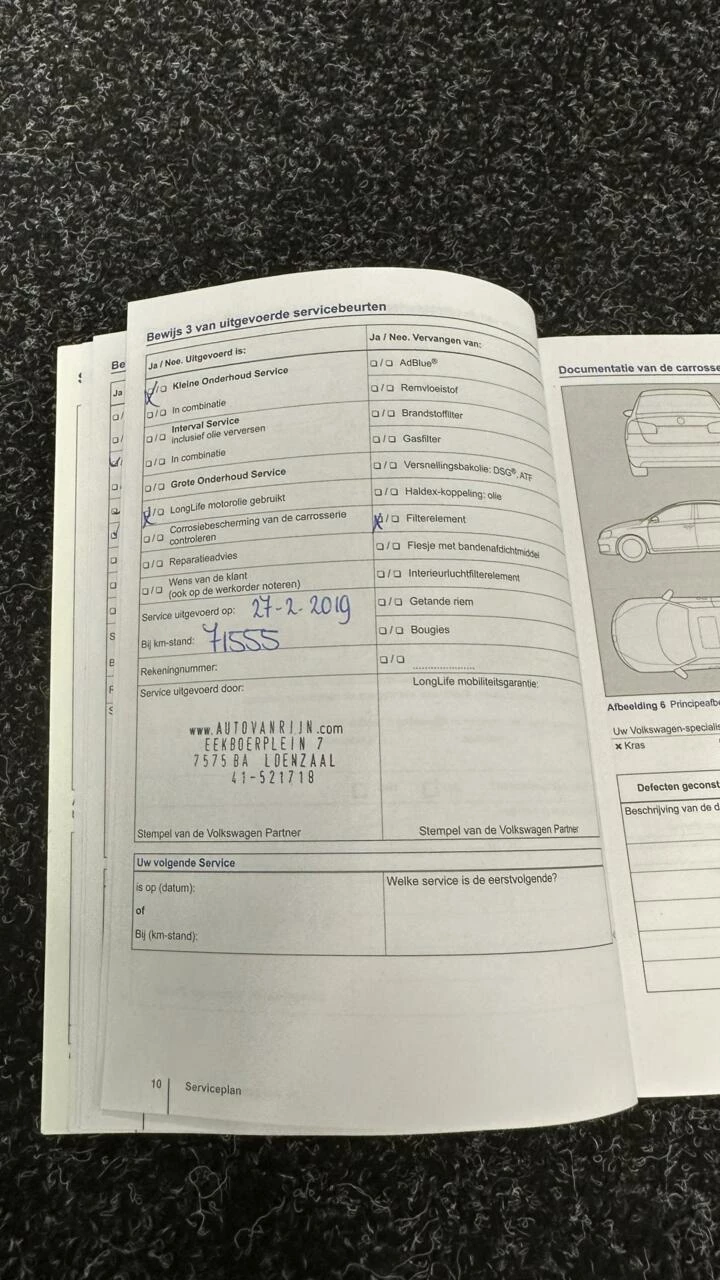 Bewijs 3 van uitgevoerde servicebeurten
Ja / Nee. Uitgevoerd is:
❑/❑ Kleine Onderhoud Service
❑/❑ In combinatie
❑/❑ Interval Service
inclusief olie verversen
❑/❑ In combinatie
❑/❑ Grote Onderhoud Service
❑/❑ LongLife motorolie gebruikt
❑/❑ Corrosiebescherming van de carrosserie
controleren
❑/❑ Reparatieadvies
❑/❑ Wens van de klant
(ook op de werkorder noteren)
Service uitgevoerd op: 27-2-2019
Bij km-stand: 71555
Rekeningnummer:
Service uitgevoerd door:
www.AUTOVANRIJN.com
EEKBOERPLEIN 7
7575 BA LOENZAAL
41-521718
Stempel van de Volkswagen Partner
Ja / Nee. Vervangen van:
❑/❑ AdBlue®
❑/❑ Remvloeistof
❑/❑ Brandstoffilter
❑/❑ Gasfilter
❑/❑ Versnellingsbakolie: DSG®, ATF
❑/❑ Haldex-koppeling: olie
❑/❑ Filterelement
❑/❑ Flesje met bandenafdichtmiddel
❑/❑ Interieurluchtfilterelement
❑/❑ Getande riem
❑/❑ Bougies
❑/❑ ....................
LongLife mobiliteitsgarantie:
Stempel van de Volkswagen Partner
Uw volgende Service
is op (datum):
of
Bij (km-stand):
Welke service is de eerstvolgende?
10 Serviceplan
Be
Ja
Documentatie van de carrosse
Afbeelding 6 Principeafbe
Uw Volkswagen-specialis
× Kras
Defecten geconst
Beschrijving van de d